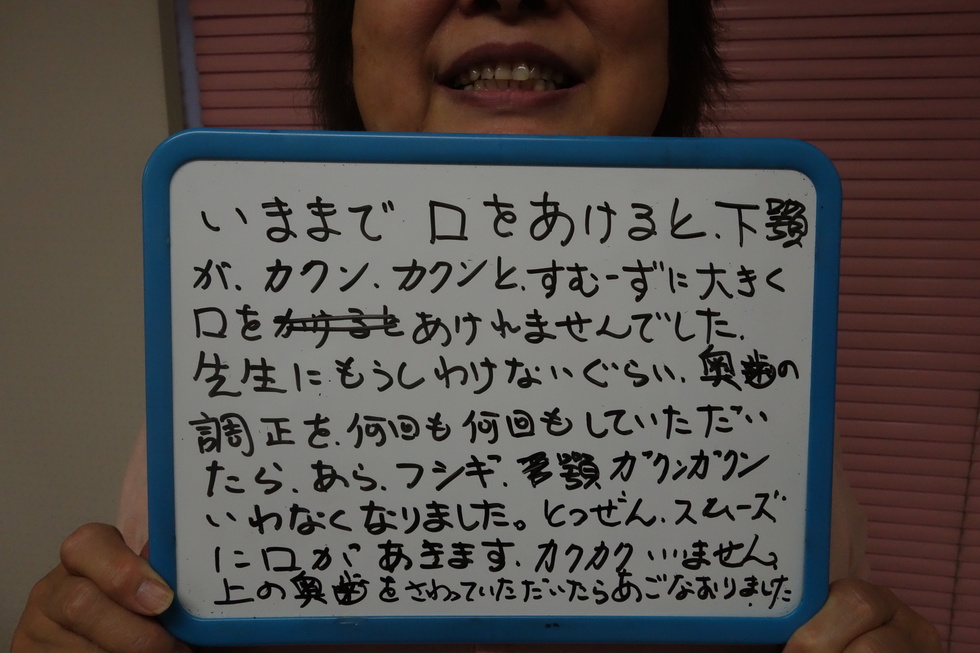 いままで 口をあけると、下顎
が、カクン、カクンと、すむーずに大きく
口をあけれませんでした。
先生にもうしわけないぐらい、奥歯の
調正を、何回も何回もしていただい
たら、あら、フシギ、顎ガクンガクン
いわなくなりました。とつぜん、スムーズ
に口があきます、カクカクいいません。
上の奥歯をさわっていただいたらあごなおりました